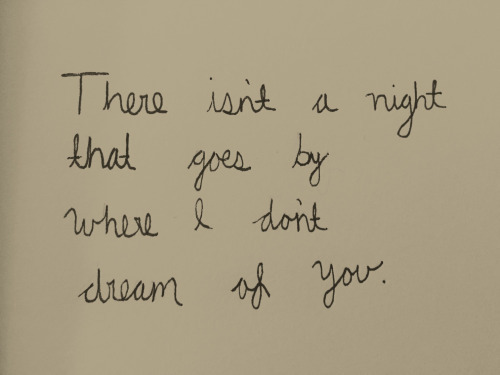 There isn't a night
that goes by
where I don't
dream of you.